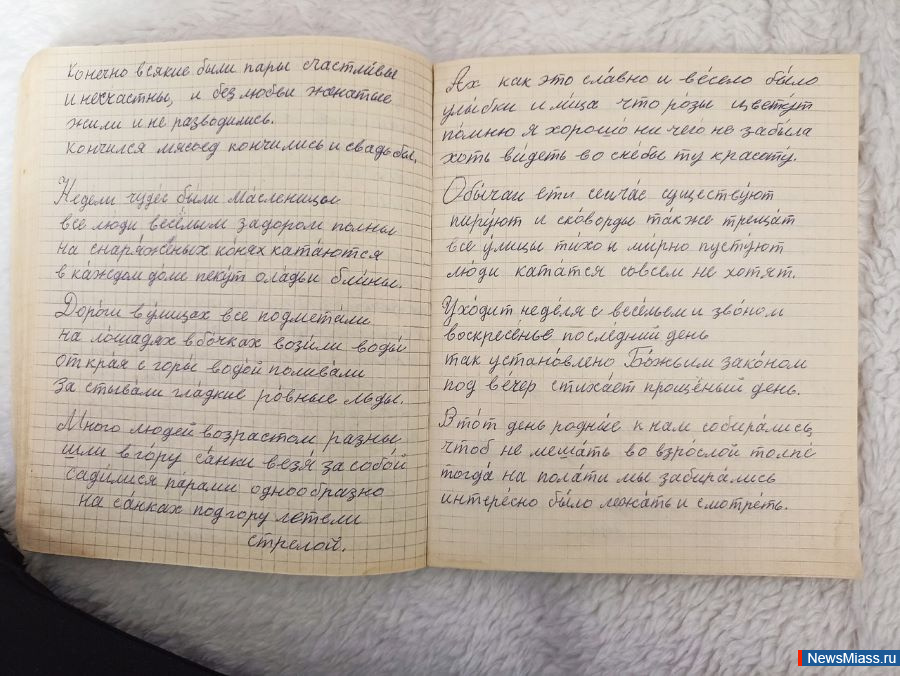 Конечно всякие были пары счастливые
и несчастны, и без любви жанатые
жили и не разводились.
Кончился мясоед кончились и свадьбы.
Недели чуде́с бы́ли Ма́сленицы
все лю́ди весёлым задором полны
на снаряжённых ко́нях ката́ются
в ка́ждом доме пеку́т ола́дьи бли́ны.
Доро́ги в у́лицах все подмета́ли
на ло́шадях в бо́чках вози́ли воды́
от кра́я с горы́ водо́й поливали
За стыва́ли гла́дкие ро́вные льды.
Мно́го людей возрастом разны
шли в го́ру са́нки везя́ за собо́й
сади́лися па́рами однообразно
на са́нках под гору летели
стрелой.
Ах как э́то сла́вно и ве́село бы́ло
улы́бки и ли́ца что ро́зы цвету́т
по́мню я хорошо́ ни чего́ не забы́ла
хоть ви́деть во сне́ бы ту красоту́.
Обы́чаи ети сейча́с существу́ют
пиру́ют и ско́вороды также треща́т
все у́лицы ти́хо и ми́рно пусту́ют
лю́ди ката́тся совсе́м не хотя́т.
Ухо́дит неде́ля с весе́льем и зво́ном
воскресенье после́дний день
так устано́влено Бо́жьим зако́ном
под ве́чер стиха́ет прощёный день.
В то́т день родны́е к нам собира́лись
чтоб не меша́ть во взро́слой толпе́
тогда́ на пола́ти мы забира́лись
интере́сно бы́ло лежа́ть и смотре́ть.
NewsMiass.ru